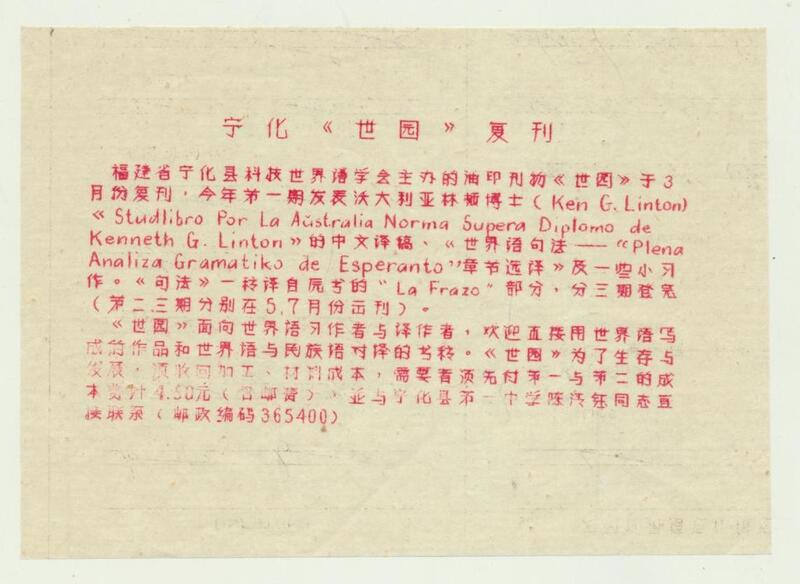 宁化《世园》复刊
福建省宁化县科技世界语学会主办的油印刊物《世园》于3
月份复刊，今年第一期发表沃大利亚林顿博士(Ken G. Linton)
《Studlibro Por La Aŭstralia Norma Supera Diplomo de
Kenneth G. Linton》的中文译稿、《世界语句法——“Plena
Analiza Gramatiko de Esperanto”章节选译》及一些小习
作。《句法》一稿译自原书的“La Frazo”部分，分三期登完
(第二.三期分别在5,7月份出刊)。
《世园》面向世界语习作者与译作者，欢迎直接用世界语写
成的作品和世界语与民族语对译的书稿。《世园》为了生存与
发展，须收回加工、材料成本，需要者须先付第一与第二的成
本费计4.50元(含邮费)，并与宁化县第一中学陈同志直
接联系(邮政编码365400)